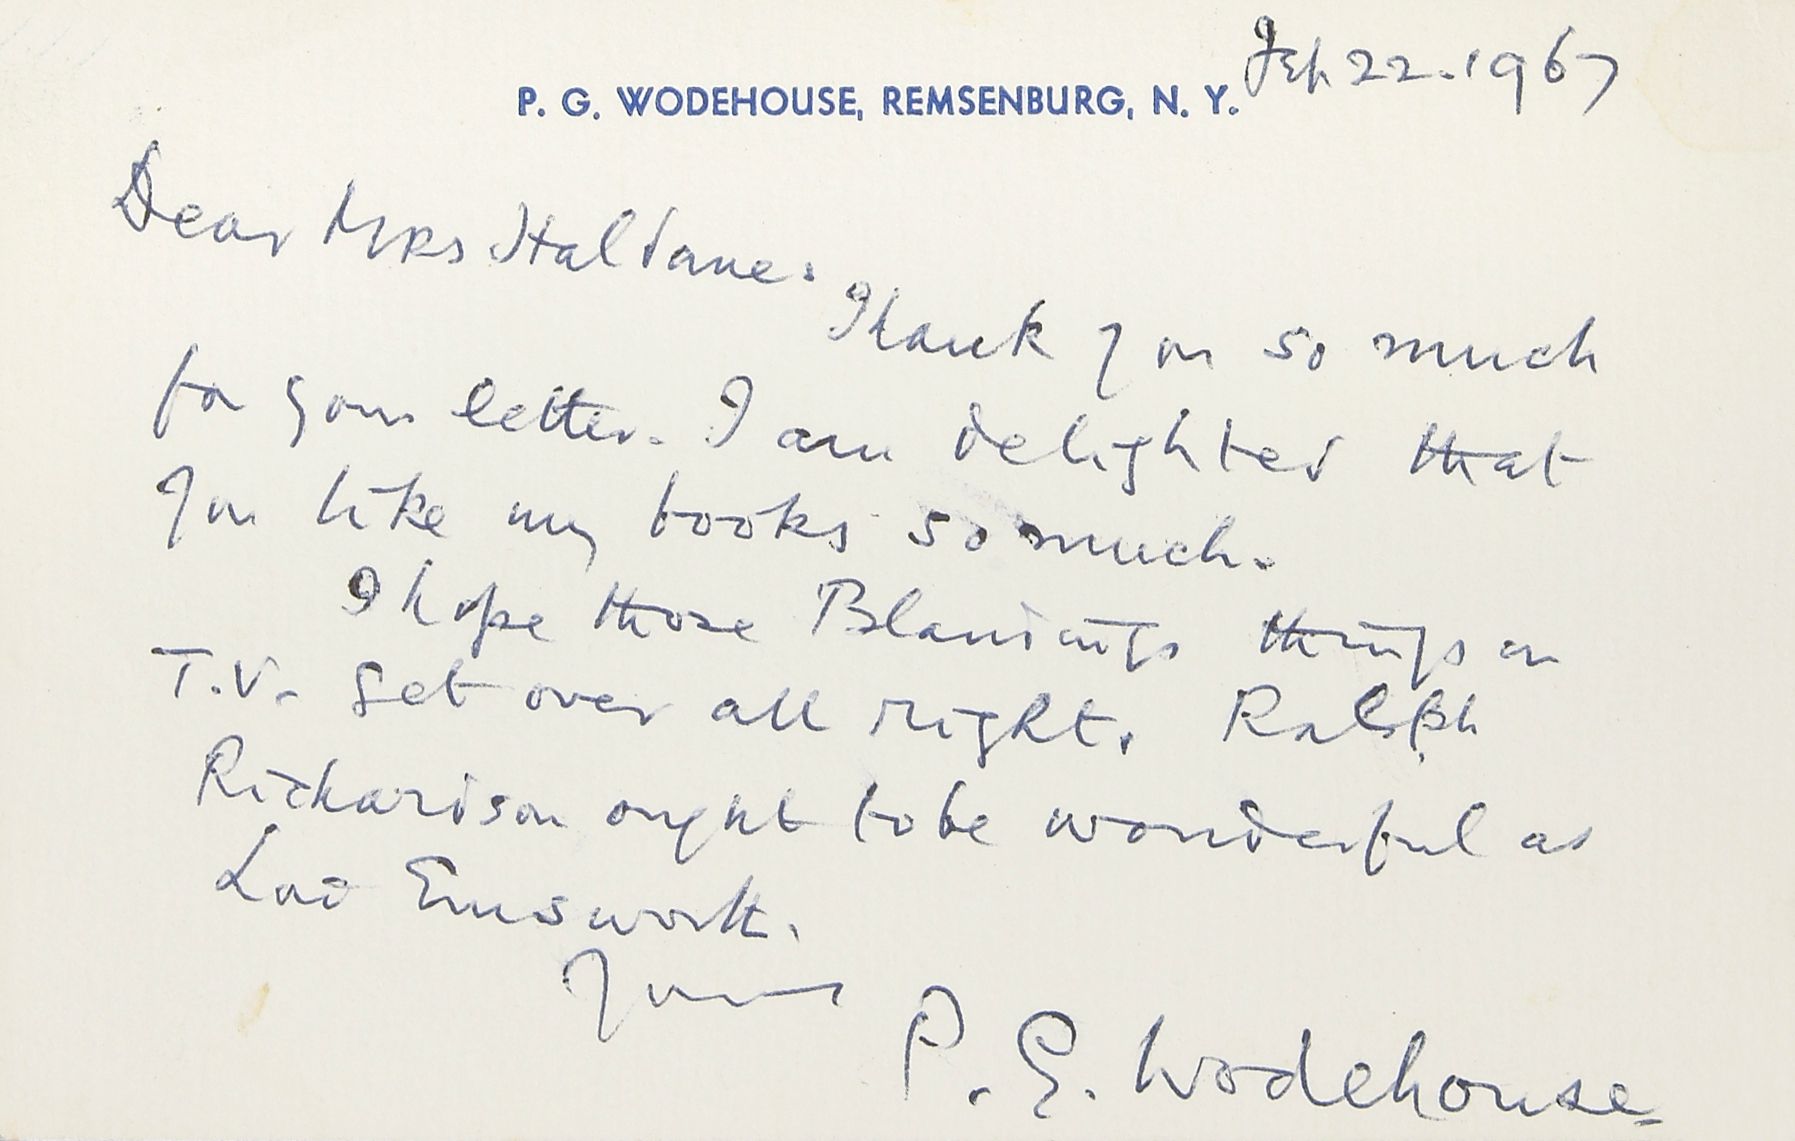 Feb 22. 1967
P. G. WODEHOUSE, REMSENBURG, N. Y.
Dear Mrs Haldane.
Thank you so much
for your letter. I am delighted that
you like my books so much.
I hope those Blandings things on
T.V. get over all right. Ralph
Richardson ought to be wonderful as
Lord Emsworth.
Yours
P. G. Wodehouse